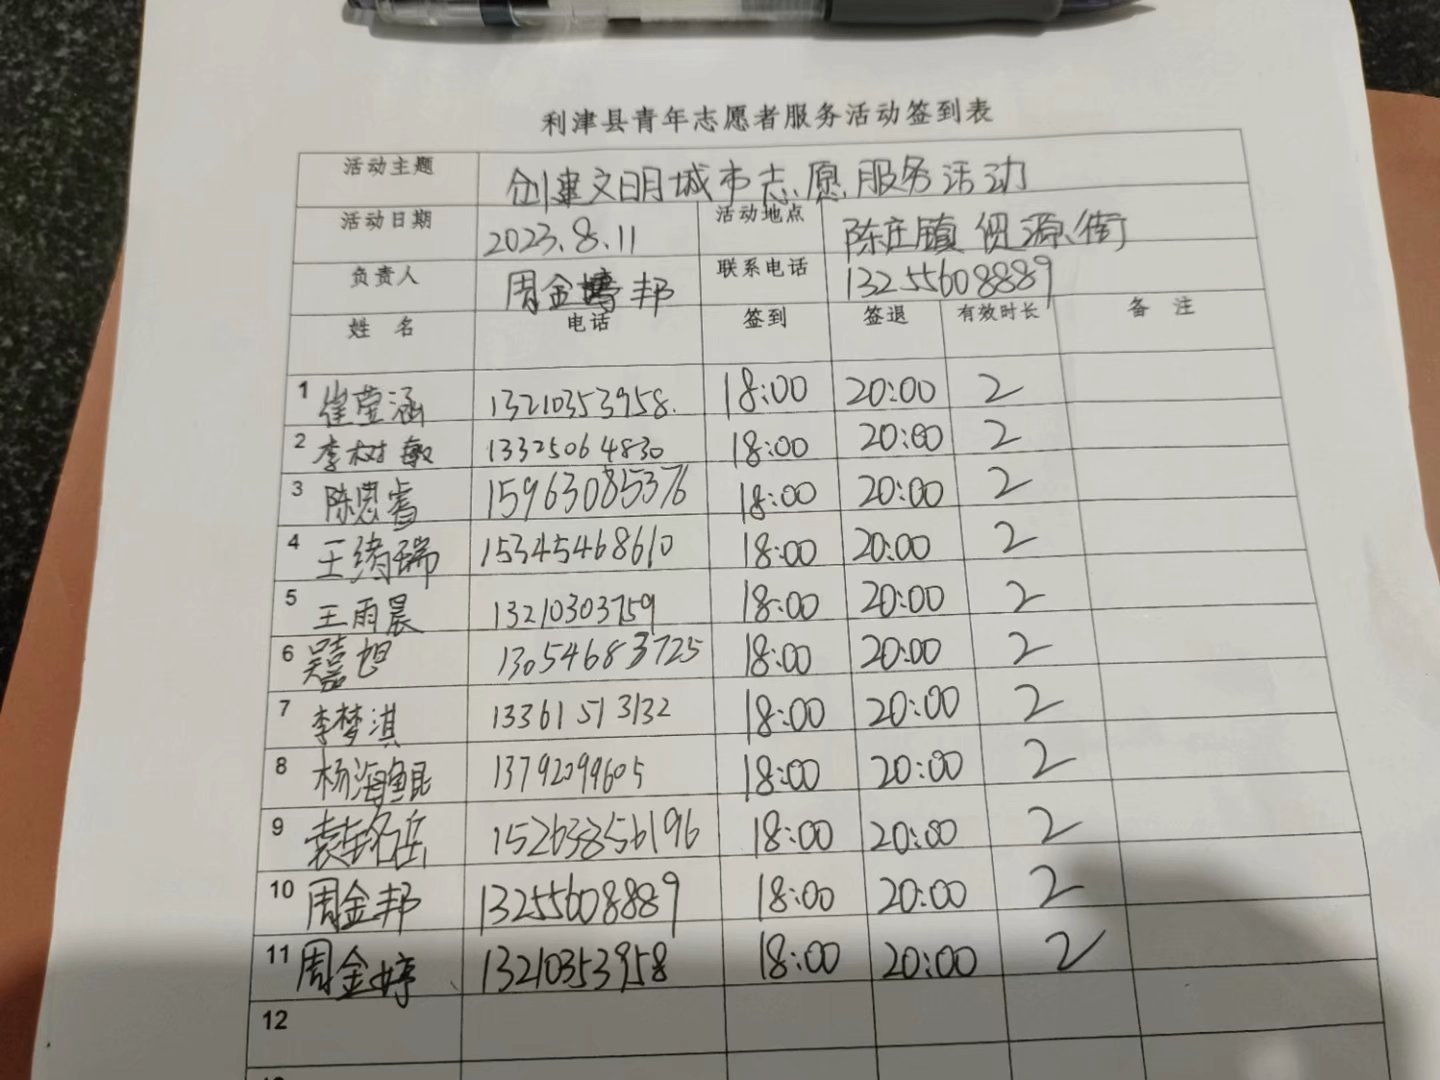 利津县青年志愿者服务活动签到表
活动主题 创建文明城市志愿服务活动
活动日期 2023.8.11 活动地点 陈庄镇 源街
负责人 周金邦 联系电话 13255608889
姓名 电话 签到 签退 有效时长 备注
1 崔莹涵 13210353958. 18:00 20:00 2
2 李树敏 13325064830 18:00 20:00 2
3 陈思睿 15963085376 18:00 20:00 2
4 王绪瑞 15345468610 18:00 20:00 2
5 王雨晨 13210303759 18:00 20:00 2
6 13054683725 18:00 20:00 2
7 李梦淇 13361513132 18:00 20:00 2
8 杨海鲲 13792099605 18:00 20:00 2
9 15263856196 18:00 20:00 2
10 周金邦 13255608889 18:00 20:00 2
11 周金婷 13210353958 18:00 20:00 2
12